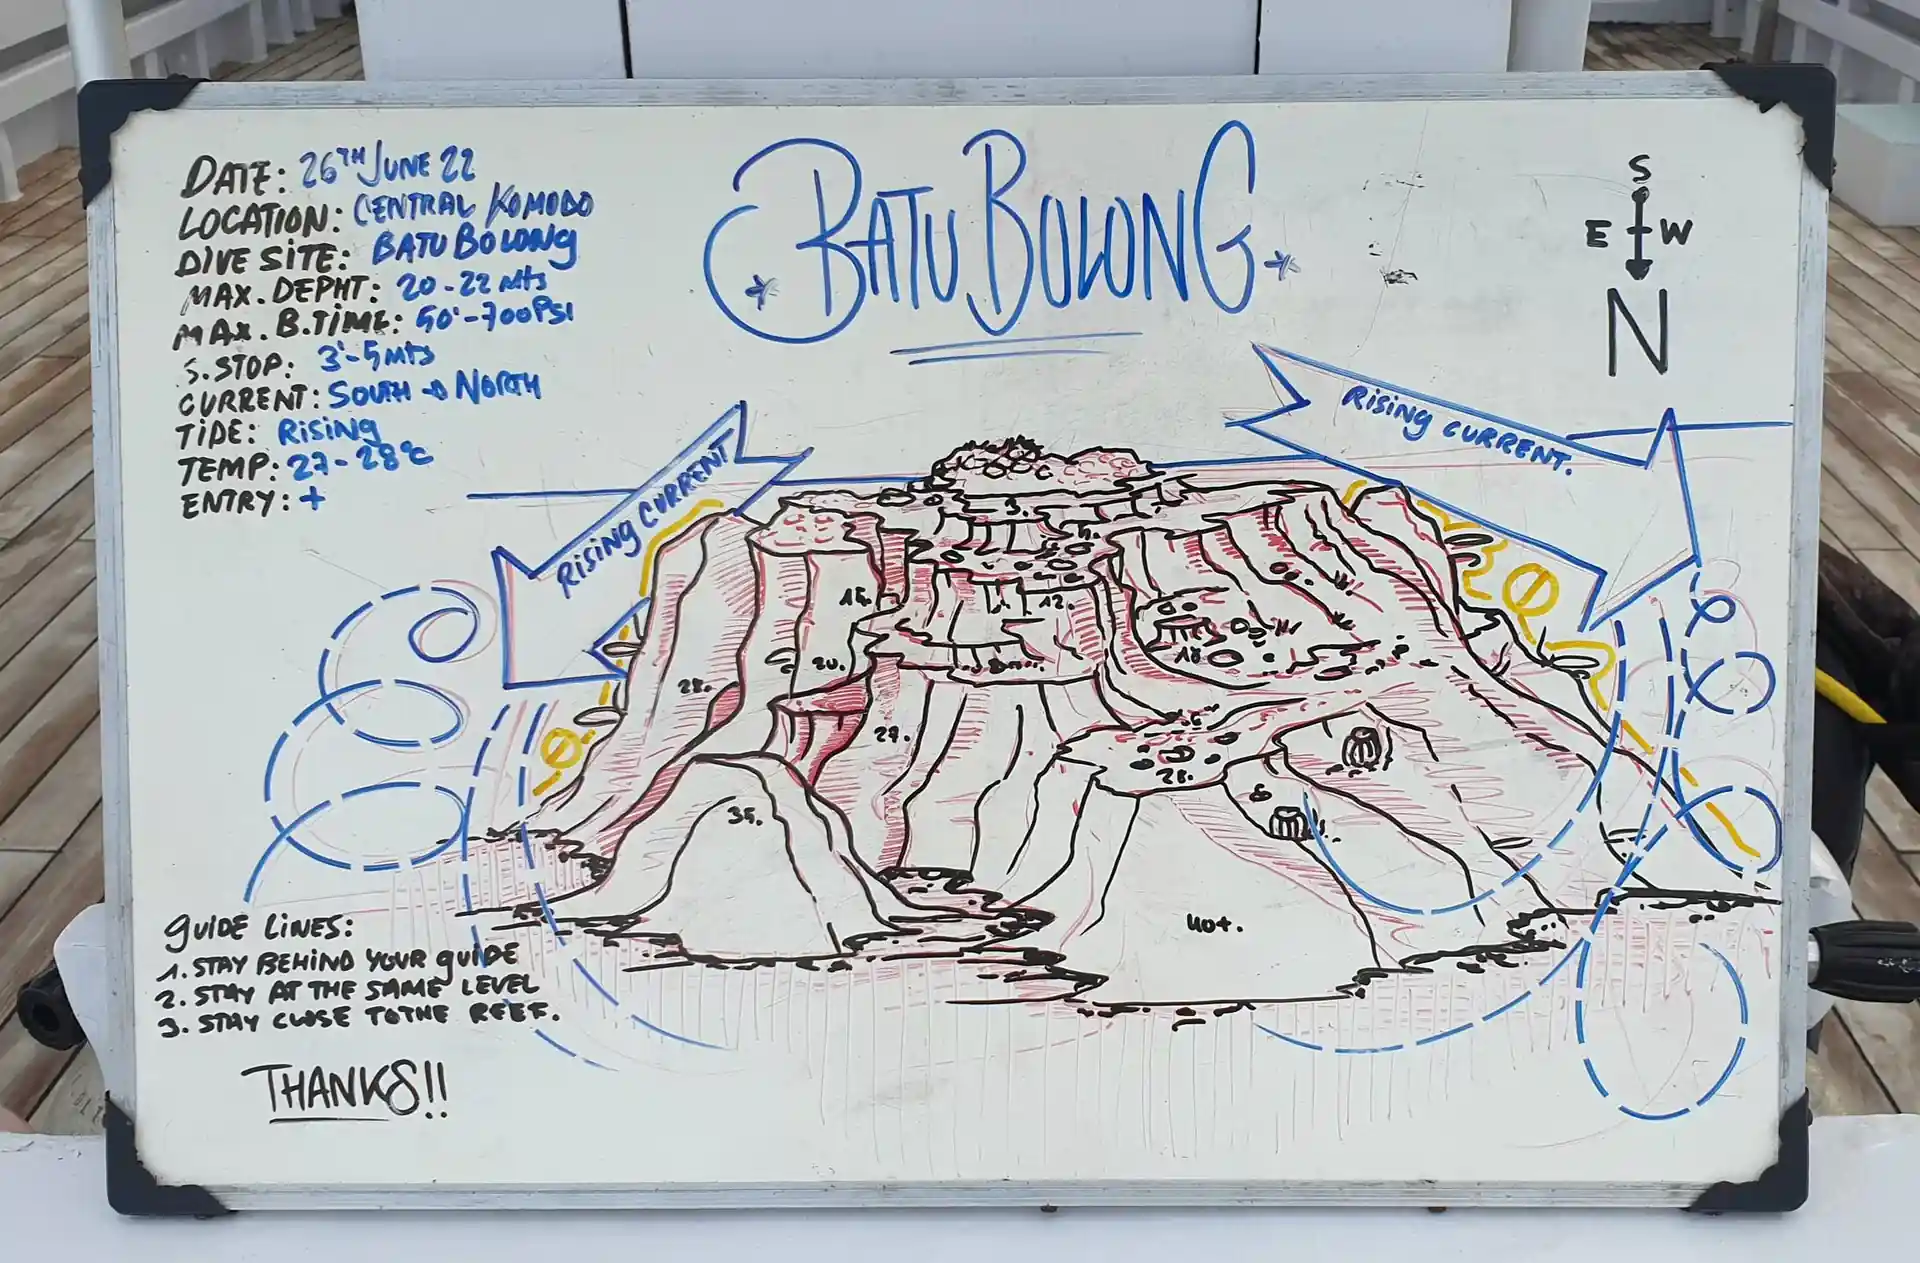 DATE: 26TH JUNE 22
LOCATION: CENTRAL KOMODO
DIVE SITE: BATU BOLONG
MAX. DEPHT: 20-22 MTS
MAX. B.TIME: 50'-700PSI
S.STOP: 3'-5MTS
CURRENT: SOUTH → NORTH
TIDE: RISING
TEMP: 27-28°C
ENTRY: +
BATU BOLONG
S
E W
N
RISING CURRENT
RISING CURRENT.
3.
12.
20.
18
27.
35.
40+.
GUIDE LINES:
1. STAY BEHIND YOUR GUIDE
2. STAY AT THE SAME LEVEL
3. STAY CLOSE TO THE REEF.
THANKS!!